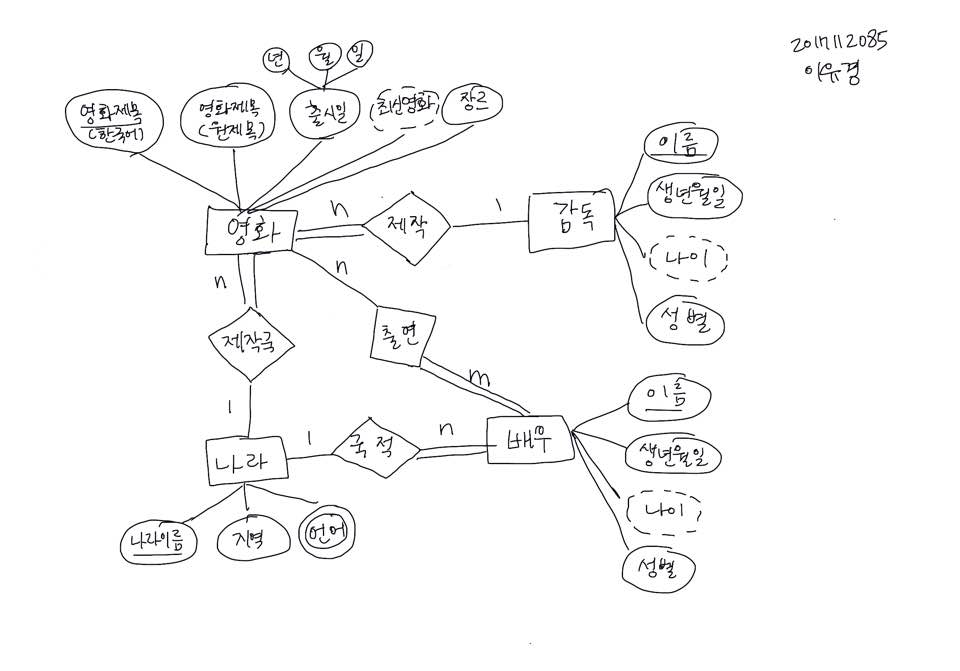 201711 2085
이유경
년
월
일
영화제목
(한국어)
영화제목
(원제목)
출시일
최신영화
장르
영화
n
제작
1
감독
이름
생년월일
나이
성별
n
제작국
1
n
출연
m
나라
1
국적
n
배우
이름
생년월일
나이
성별
나라이름
지역
언어